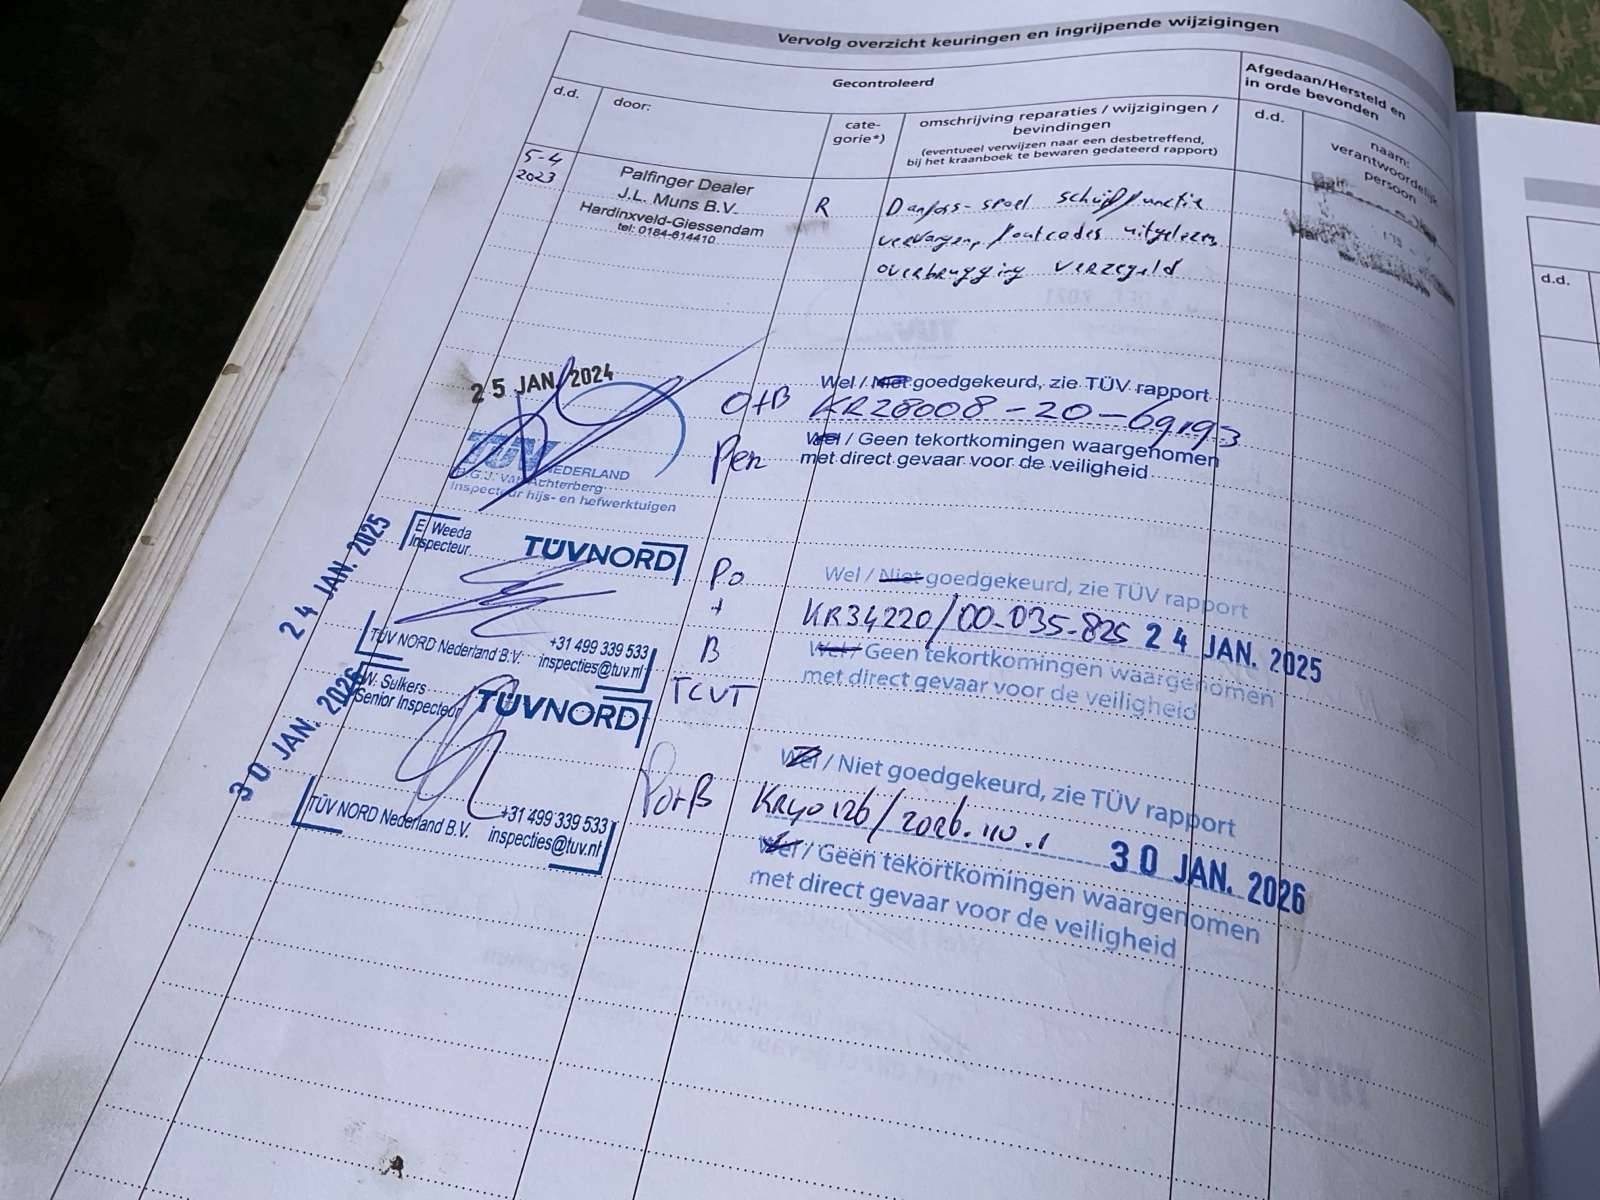 Vervolg overzicht keuringen en ingrijpende wijzigingen
Gecontroleerd
Afgedaan/Hersteld en
in orde bevonden
d.d.
door:
cate-
gorie*)
omschrijving reparaties / wijzigingen /
bevindingen
(eventueel verwijzen naar een desbetreffend,
bij het kraanboek te bewaren gedateerd rapport)
d.d.
naam:
verantwoordelijk
persoon
5-4
2023
Palfinger Dealer
J.L. Muns B.V.
Hardinxveld-Giessendam
tel: 0184-614410
R
Danfoss-spoel schuiffunctie
vervangen, foutcodes uitgelezen
overbrugging verzegeld
25 JAN. 2024
TÜV NEDERLAND
Van Achterberg
Inspecteur hijs- en hefwerktuigen
O+B
Pen
Wel / Niet goedgekeurd, zie TÜV rapport
KR28008-20-69193
Wel / Geen tekortkomingen waargenomen
met direct gevaar voor de veiligheid
24 JAN. 2025
E. Weeda
Inspecteur
TÜVNORD
TÜV NORD Nederland B.V.
+31 499 339 533
inspecties@tuv.nl
Po
+
B
TCVT
Wel / Niet goedgekeurd, zie TÜV rapport
KR34220/00-035-825 24 JAN. 2025
Wel / Geen tekortkomingen waargenomen
met direct gevaar voor de veiligheid
30 JAN. 2026
W. Sulkers
Senior Inspecteur
TÜVNORD
TÜV NORD Nederland B.V.
+31 499 339 533
inspecties@tuv.nl
Wel / Niet goedgekeurd, zie TÜV rapport
KR40126/2026.110.1 30 JAN. 2026
Wel / Geen tekortkomingen waargenomen
met direct gevaar voor de veiligheid
d.d.